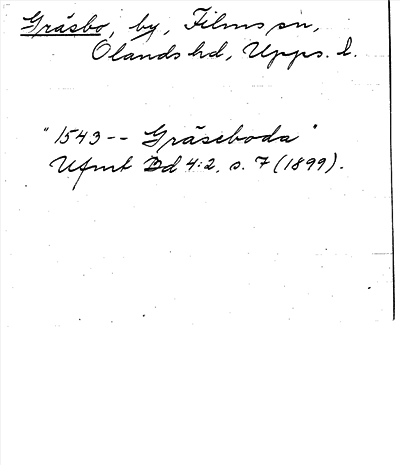 Gräsbo, by, Films sn,
Olands hd, Upps. l.
"1543 -- Gräseboda"
Ufmt Bd 4:2, s. 7 (1899).